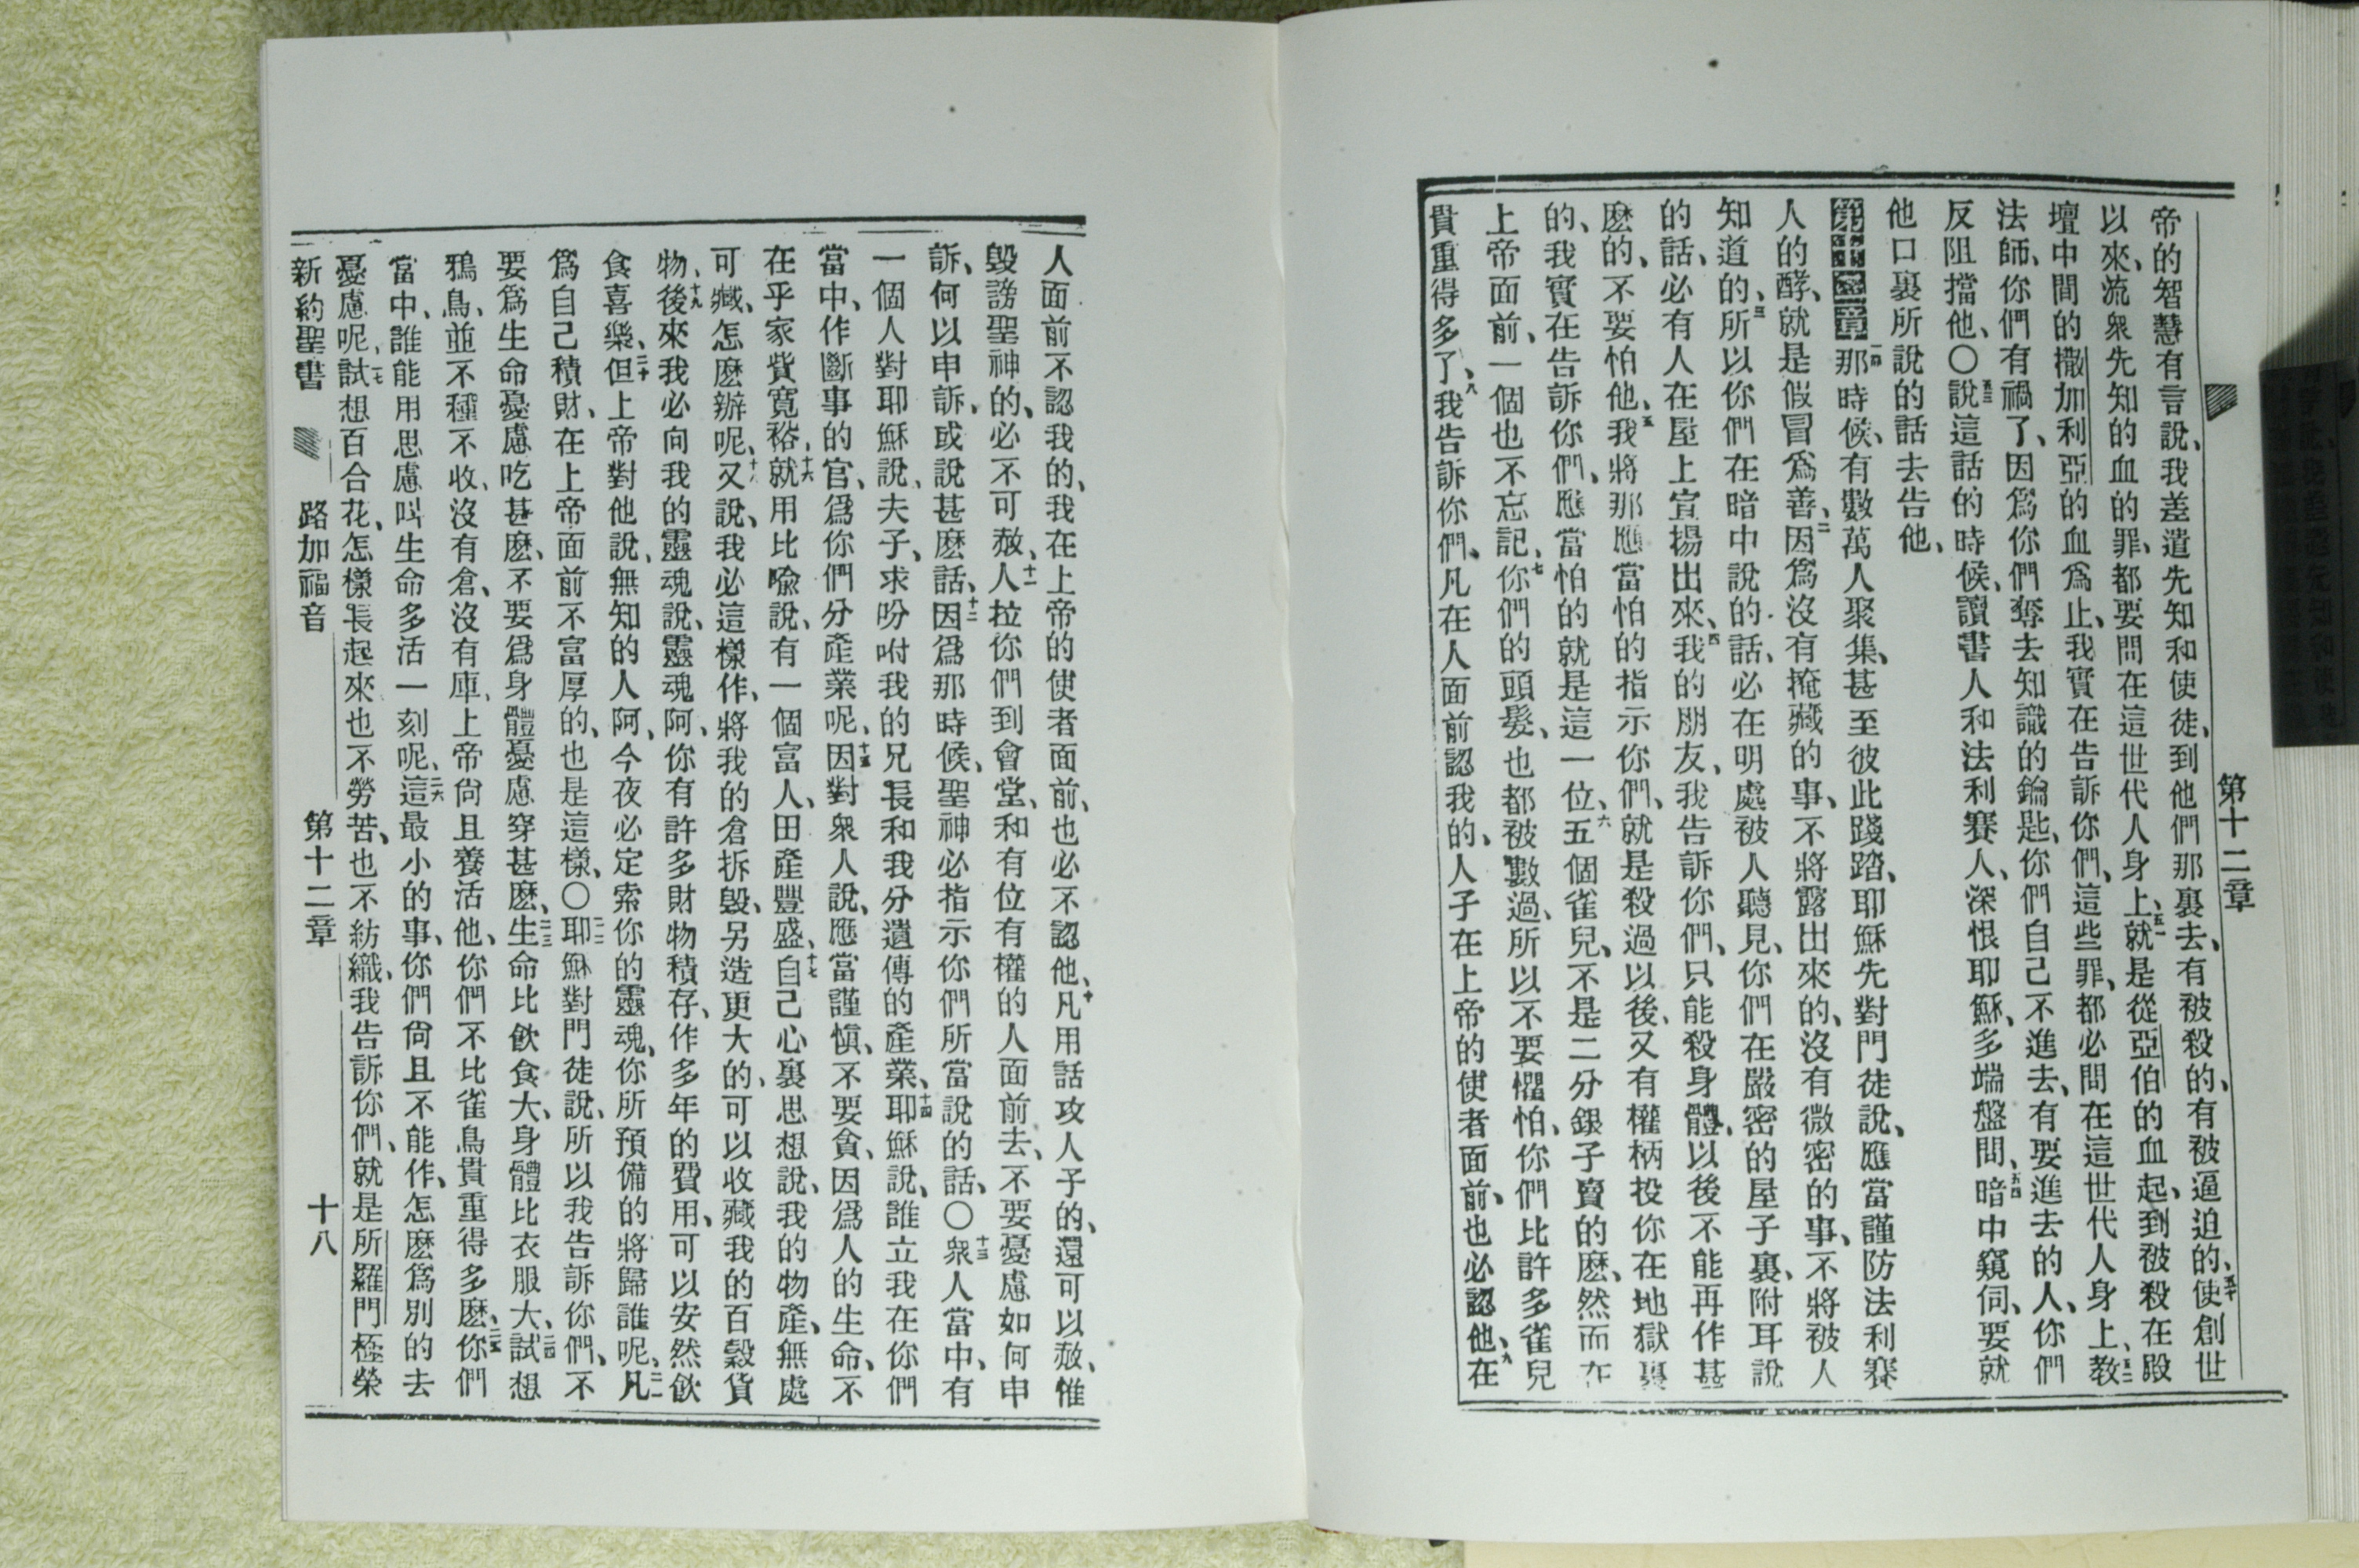 第十二章
帝的智慧有言說、我差遣先知和使徒、到他們那裏去、有被殺的、有被逼迫的、五十使創世
以來、流衆先知的血的罪、都要問在這世代人身上、五一就是從亞伯的血起、到被殺在殿
壇中間的撒加利亞的血爲止、我實在告訴你們、這些罪、都必問在這世代人身上、五二敎
法師、你們有禍了、因爲你們奪去知識的鑰匙、你們自己不進去、有要進去的人、你們
反阻擋他、〇五三說這話的時候、讀書人和法利賽人、深恨耶穌、多端盤問、五四暗中窺伺、要就
他口裏所說的話去告他、
第十二章一那時候、有數萬人聚集、甚至彼此踐踏、耶穌先對門徒說、應當謹防法利賽
人的酵、就是假冒爲善、二因爲沒有掩藏的事、不將露出來的、沒有微密的事、不將被人
知道的、三所以你們在暗中說的話、必在明處被人聽見、你們在嚴密的屋子裏、附耳說
的話、必有人在屋上宣揚出來、四我的朋友、我告訴你們、只能殺身體、以後不能再作甚
麽的、不要怕他、五我將那應當怕的指示你們、就是殺過以後、又有權柄投你在地獄裏
的、我實在告訴你們、應當怕的就是這一位、六五個雀兒、不是二分銀子賣的麽、然而在
上帝面前、一個也不忘記、七你們的頭髮、也都被數過、所以不要懼怕、你們比許多雀兒
貴重得多了、八我告訴你們、凡在人面前認我的、人子在上帝的使者面前、也必認他、九在
人面前不認我的、我在上帝的使者面前、也必不認他、十凡用話攻人子的、還可以赦、惟
毀謗聖神的、必不可赦、十一人拉你們到會堂、和有位有權的人面前去、不要憂慮如何申
訴、何以申訴、或說甚麽話、十二因爲那時候、聖神必指示你們所當說的話、〇十三衆人當中、有
一個人對耶穌說、夫子、求吩咐我的兄長和我分遺傳的產業、十四耶穌說、誰立我在你們
當中、作斷事的官、爲你們分產業呢、十五因對衆人說、應當謹愼、不要貪、因爲人的生命、不
在乎家貲寬裕、十六就用比喩說、有一個富人、田產豐盛、十七自己心裏思想說、我的物產、無處
可藏、怎麽辦呢、十八又說、我必這樣作、將我的倉拆毀、另造更大的、可以收藏我的百穀貨
物、十九後來我必向我的靈魂說、靈魂阿、你有許多財物積存、作多年的費用、可以安然飮
食喜樂、二十但上帝對他說、無知的人阿、今夜必定索你的靈魂、你所預備的將歸誰呢、二一凡
爲自己積財、在上帝面前不富厚的、也是這樣、〇二二耶穌對門徒說、所以我告訴你們、不
要爲生命憂慮吃甚麽、不要爲身體憂慮穿甚麽、二三生命比飮食大、身體比衣服大、二四試想
鴉鳥、並不種不收、沒有倉、沒有庫、上帝尙且養活他、你們不比雀鳥貴重得多麽、二五你們
當中、誰能用思慮叫生命多活一刻呢、二六這最小的事、你們尙且不能作、怎麽爲別的去
憂慮呢、二七試想百合花、怎樣長起來也不勞苦、也不紡織、我告訴你們、就是所羅門極榮
新約聖書 路加福音 第十二章 十八